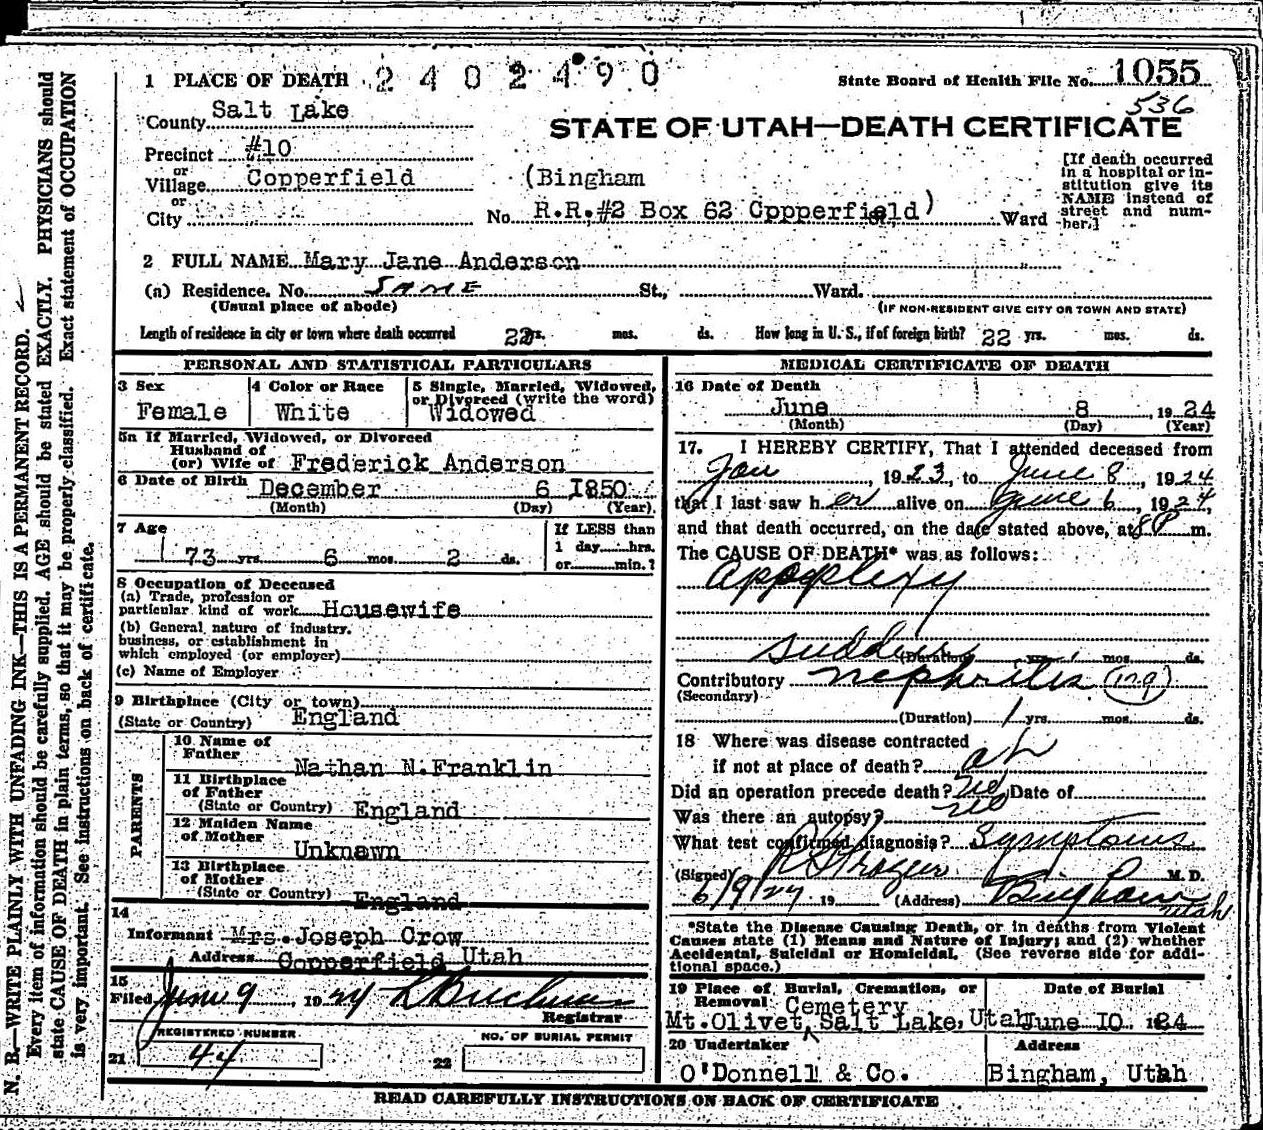 1 PLACE OF DEATH 2402490 State Board of Health File No. 1055
536
County Salt Lake
STATE OF UTAH—DEATH CERTIFICATE
Precinct #10
or
Village Copperfield (Bingham
or
City No. R.R.#2 Box 62 Cppperfield) St., Ward
[If death occurred
in a hospital or in-
stitution give its
NAME instead of
street and num-
ber.]
2 FULL NAME Mary Jane Anderson
(a) Residence. No. SAME St., Ward.
(Usual place of abode) (IF NON-RESIDENT GIVE CITY OR TOWN AND STATE)
Length of residence in city or town where death occurred 22 yrs. mos. ds. How long in U. S., if of foreign birth? 22 yrs. mos. ds.
PERSONAL AND STATISTICAL PARTICULARS
3 Sex
Female
4 Color or Race
White
5 Single, Married, Widowed,
or Divorced (write the word)
Widowed
5a If Married, Widowed, or Divorced
Husband of
(or) Wife of Frederick Anderson
6 Date of Birth December 6 1850
(Month) (Day) (Year)
7 Age
73 yrs. 6 mos. 2 ds.
If LESS than
1 day.....hrs.
or.........min.?
8 Occupation of Deceased
(a) Trade, profession or
particular kind of work Housewife
(b) General nature of industry,
business, or establishment in
which employed (or employer)
(c) Name of Employer
9 Birthplace (City or town)
(State or Country) England
PARENTS
10 Name of
Father Nathan N.Franklin
11 Birthplace
of Father
(State or Country) England
12 Maiden Name
of Mother
Unknawn
13 Birthplace
of Mother
(State or Country) England
14
Informant Mrs. Joseph Crow
Address Copperfield Utah
15
Filed June 9, 1924
Registrar
REGISTERED NUMBER
21 44
NO. OF BURIAL PERMIT
22
MEDICAL CERTIFICATE OF DEATH
16 Date of Death
June 8, 1924
(Month) (Day) (Year)
17. I HEREBY CERTIFY, That I attended deceased from
Jan, 1923, to June 8, 1924
that I last saw her alive on June 6, 1924,
and that death occurred, on the date stated above, at 8 P m.
The CAUSE OF DEATH* was as follows:
Appoplexy
sudden (Duration) yrs. mos. ds.
Contributory nephritis (129)
(Secondary)
(Duration) 1 yrs. mos. ds.
18 Where was disease contracted
if not at place of death?
Did an operation precede death? no Date of
Was there an autopsy? no
What test confirmed diagnosis? Symptoms
(Signed) M. D.
6/9/24 19 (Address) Bingham Utah
*State the Disease Causing Death, or in deaths from Violent
Causes state (1) Means and Nature of Injury; and (2) whether
Accidental, Suicidal or Homicidal. (See reverse side for addi-
tional space.)
19 Place of Burial, Cremation, or
Removal Cemetery
Mt.Olivet, Salt Lake, Utah
Date of Burial
June 10 1924
20 Undertaker
O'Donnell & Co.
Address
Bingham, Utah
READ CAREFULLY INSTRUCTIONS ON BACK OF CERTIFICATE
N. B.—WRITE PLAINLY WITH UNFADING INK—THIS IS A PERMANENT RECORD.
Every item of information should be carefully supplied. AGE should be stated EXACTLY. PHYSICIANS should
state CAUSE OF DEATH in plain terms, so that it may be properly classified. Exact statement of OCCUPATION
is very important. See instructions on back of certificate.